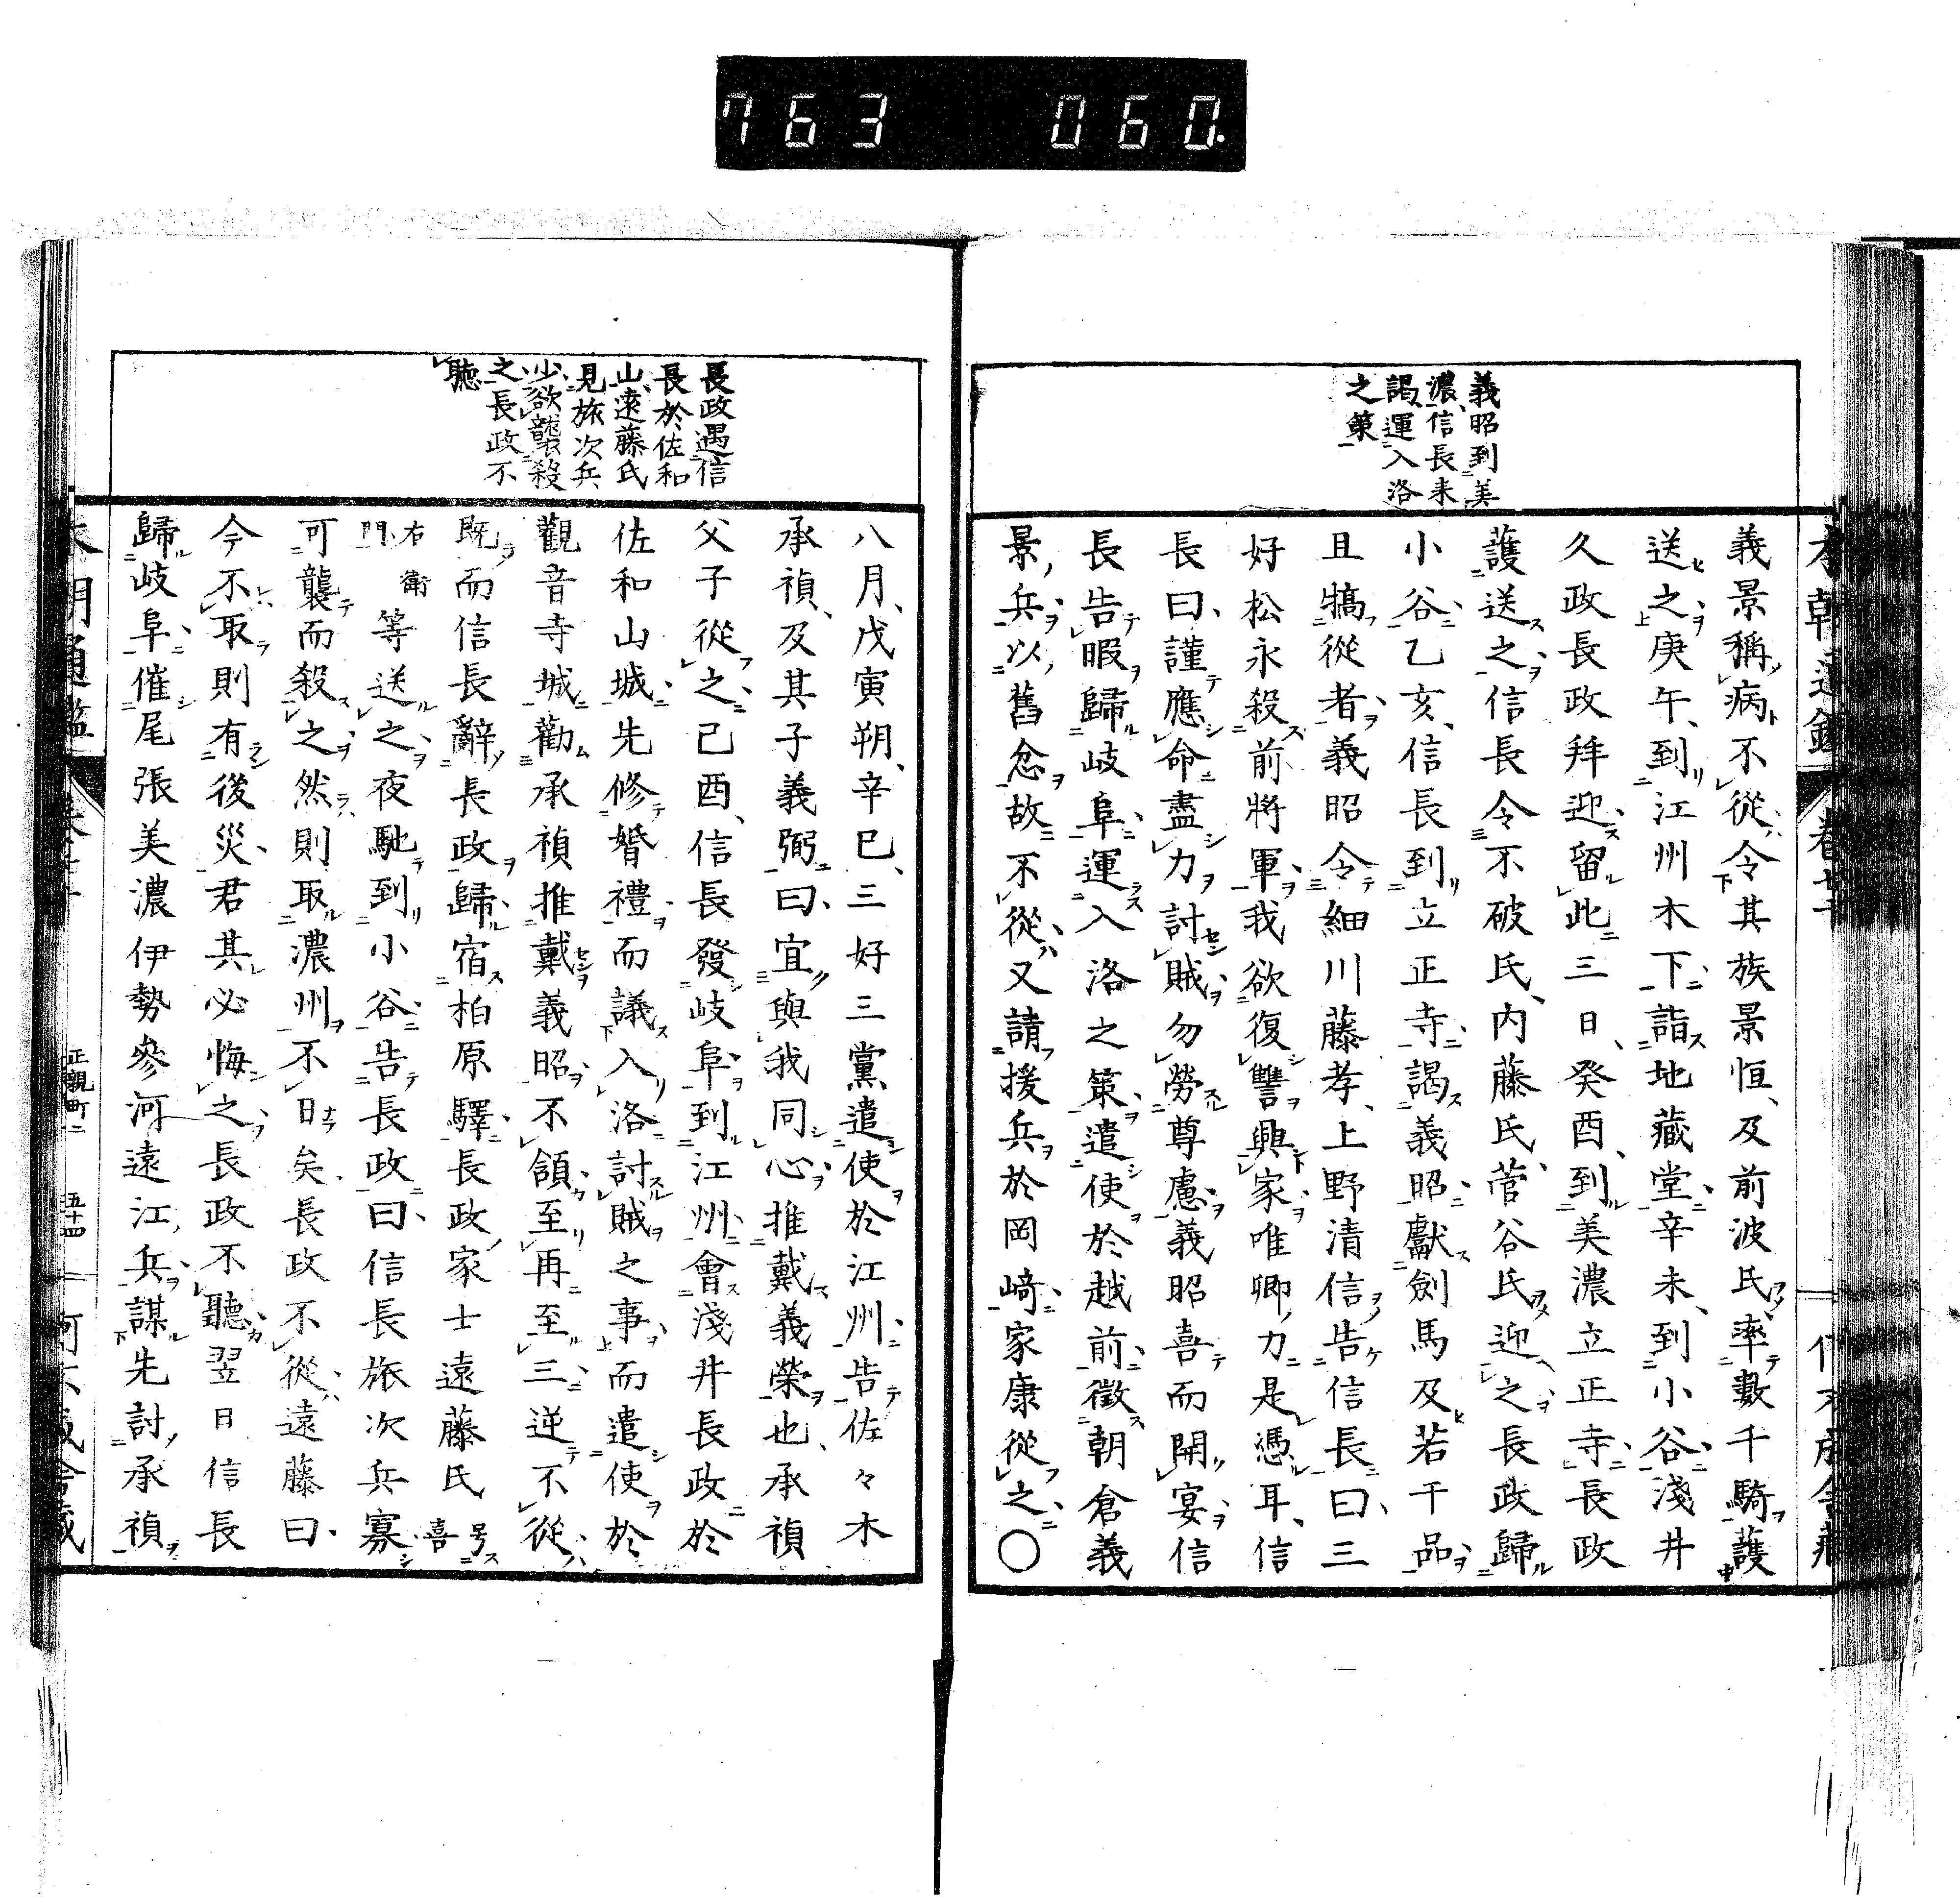 763 060.
義昭到美
濃、信長来
謁、運入洛
之策
義景稱病不從、令其族景恒、及前波氏、率數千騎護
送之、庚午、到江州木下、詣地藏堂、辛未、到小谷、淺井
久政長政拜迎、留此三日、癸酉、到美濃立正寺、長政
護送之、信長令不破氏、内藤氏、菅谷氏迎之、長政歸
小谷、乙亥、信長到立正寺、謁義昭、獻劍馬及若干品、
且犒從者、義昭令細川藤孝、上野清信告信長曰、三
好松永殺前將軍、我欲復讐興家、唯卿力是憑耳、信
長曰、謹應命盡力討賊、勿勞尊慮、義昭喜而開宴、信
長告暇歸岐阜、運入洛之策、遣使於越前、徵朝倉義
景兵、以舊忿故不從、又請援兵於岡崎、家康從之、〇
長政遇信
長於佐和
山、遠藤氏
見旅次兵
少、欲襲殺
之、長政不
聽
八月、戊寅朔、辛巳、三好三黨遣使於江州、告佐々木
承禎、及其子義弼曰、宜與我同心、推戴義榮也、承禎
父子從之、已酉、信長發岐阜、到江州、會淺井長政於
佐和山城、先修婚禮、而議入洛討賊之事、而遣使於
觀音寺城、勸承禎推戴義昭、不頷、至再至三、逆不從、
既而信長辭長政、歸宿柏原驛、長政家士遠藤氏号喜
右衛門等送之、夜馳到小谷、告長政曰、信長旅次兵寡、
可襲而殺之、然則取濃州不日矣、長政不從、遠藤曰、
今不取則有後災、君其必悔之、長政不聽、翌日信長
歸岐阜、催尾張美濃伊勢參河遠江兵、謀先討承禎
正親町二 五十四